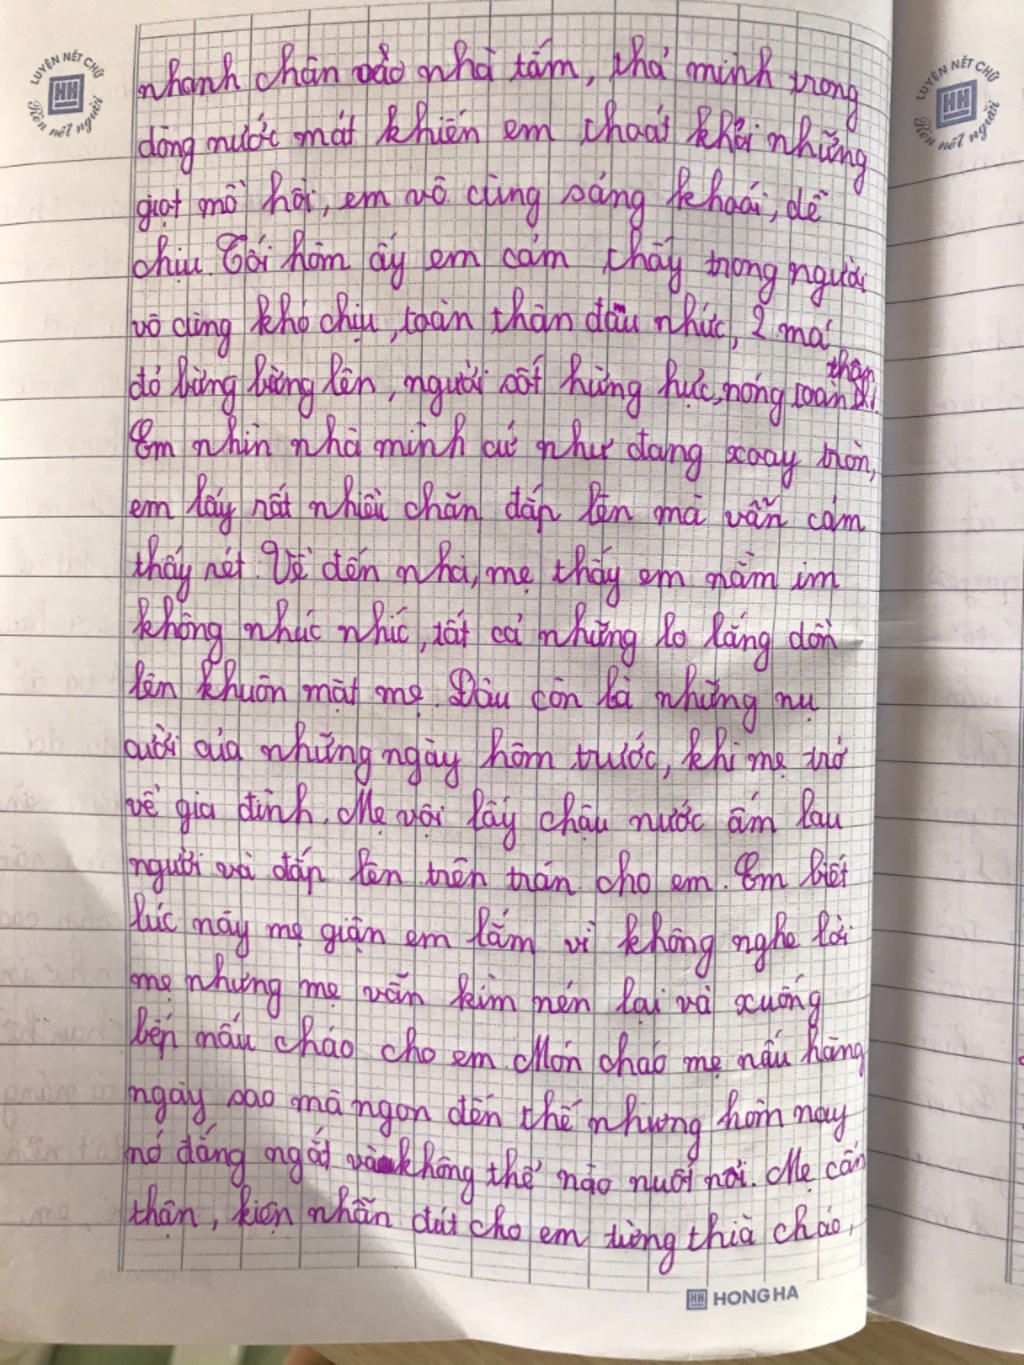 LUYỆN NÉT CHỮ
Rèn nết người
LUYỆN NÉT CHỮ
Rèn nết người
nhanh chân vào nhà tắm, thả mình trong
dòng nước mát khiến em thoát khỏi những
giọt mồ hôi, em vô cùng sáng khoái, dễ
chịu. Tối hôm ấy em cảm thấy trong người
vô cùng khó chịu, toàn thân đau nhức, 2 má
đỏ bừng bừng lên, người sốt hừng hực, nóng toàn thân
Em nhìn nhà mình cứ như đang xoay tròn,
em lấy rất nhiều chăn đắp lên mà vẫn cảm
thấy rét. Về đến nhà, mẹ thấy em nằm im
không nhúc nhíc, tất cả những lo lắng dồn
lên khuôn mặt mẹ. Đâu còn là những nụ
cười của những ngày hôm trước, khi mẹ trở
về gia đình. Mẹ vội lấy chậu nước ấm lau
người và đắp lên trên trán cho em. Em biết
lúc này mẹ giận em lắm vì không nghe lời
mẹ nhưng mẹ vẫn kìm nén lại và xuống
bếp nấu cháo cho em. Món cháo mẹ nấu hằng
ngày sao mà ngon đến thế nhưng hôm nay
nó đắng ngắt và không thể nào nuốt nổi. Mẹ cẩn
thận, kiên nhẫn đút cho em từng thìa cháo,
HH HONG HA